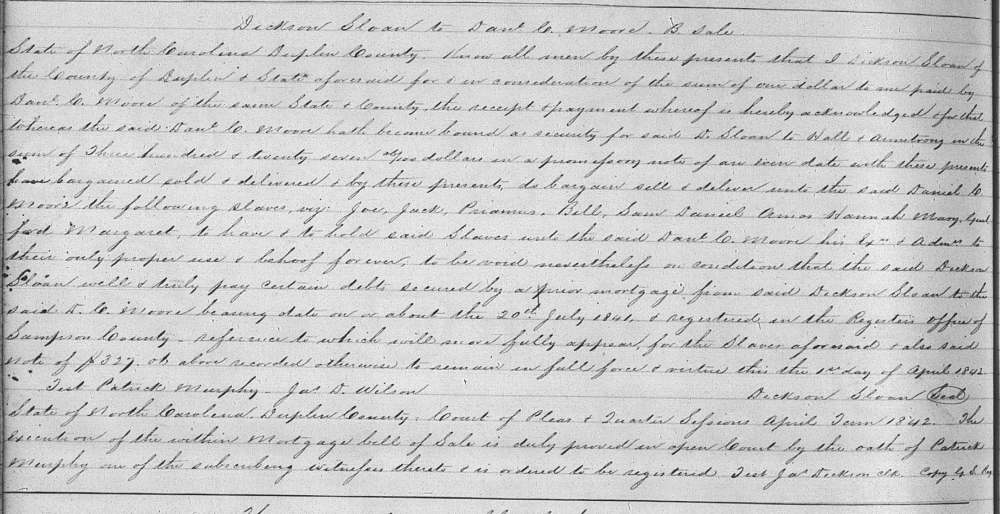 Dickson Sloan to Danl. C. Moore. B Sale
State of North Carolina Duplin County. Know all men by these presents that I Dickson Sloan of
the County of Duplin & State aforesaid for & in consideration of the sum of one dollar to me paid by
Danl. C. Moore of the same State & County, the receipt & payment whereof is hereby acknowledged & for that
whereas the said Danl. C. Moore hath become bound as security for said D. Sloan to Hall & Armstrong in the
sum of Three hundred & twenty seven /100 dollars in a promissory note of an even date with these presents
have bargained sold & delivered & by these presents, do bargain sell & deliver unto the said Daniel C.
Moore the following slaves, viz: Joe, Jack, Priamus, Bell, Sam Daniel Amos Hannah Mary,
& Margaret, to have & to hold said Slaves unto the said Danl. C. Moore his Exrs & Admrs to
their only proper use & behoof forever, to be void nevertheless on condition that the said Dickson
Sloan well & truly pay certain debts secured by a prior mortgage from said Dickson Sloan to the
said D. C. Moore bearing date on or about the 20th July 1841, & registered in the Registers Office of
Sampson County - reference to which will more fully appear, for the Slaves aforesaid & also said
note of $327. as above recorded otherwise to remain in full force & virtue this the 1st day of April 1842
Test Patrick Murphy. Jas. D. Wilson Dickson Sloan Seal
State of North Carolina. Duplin County. Court of Pleas & Quarter Sessions April Term 1842. The
execution of the within Mortgage bill of Sale is duly proved in open Court by the oath of Patrick
Murphy one of the subscribing witnesses thereto & is ordered to be registered Test Jas. Dickson Clk. Copy